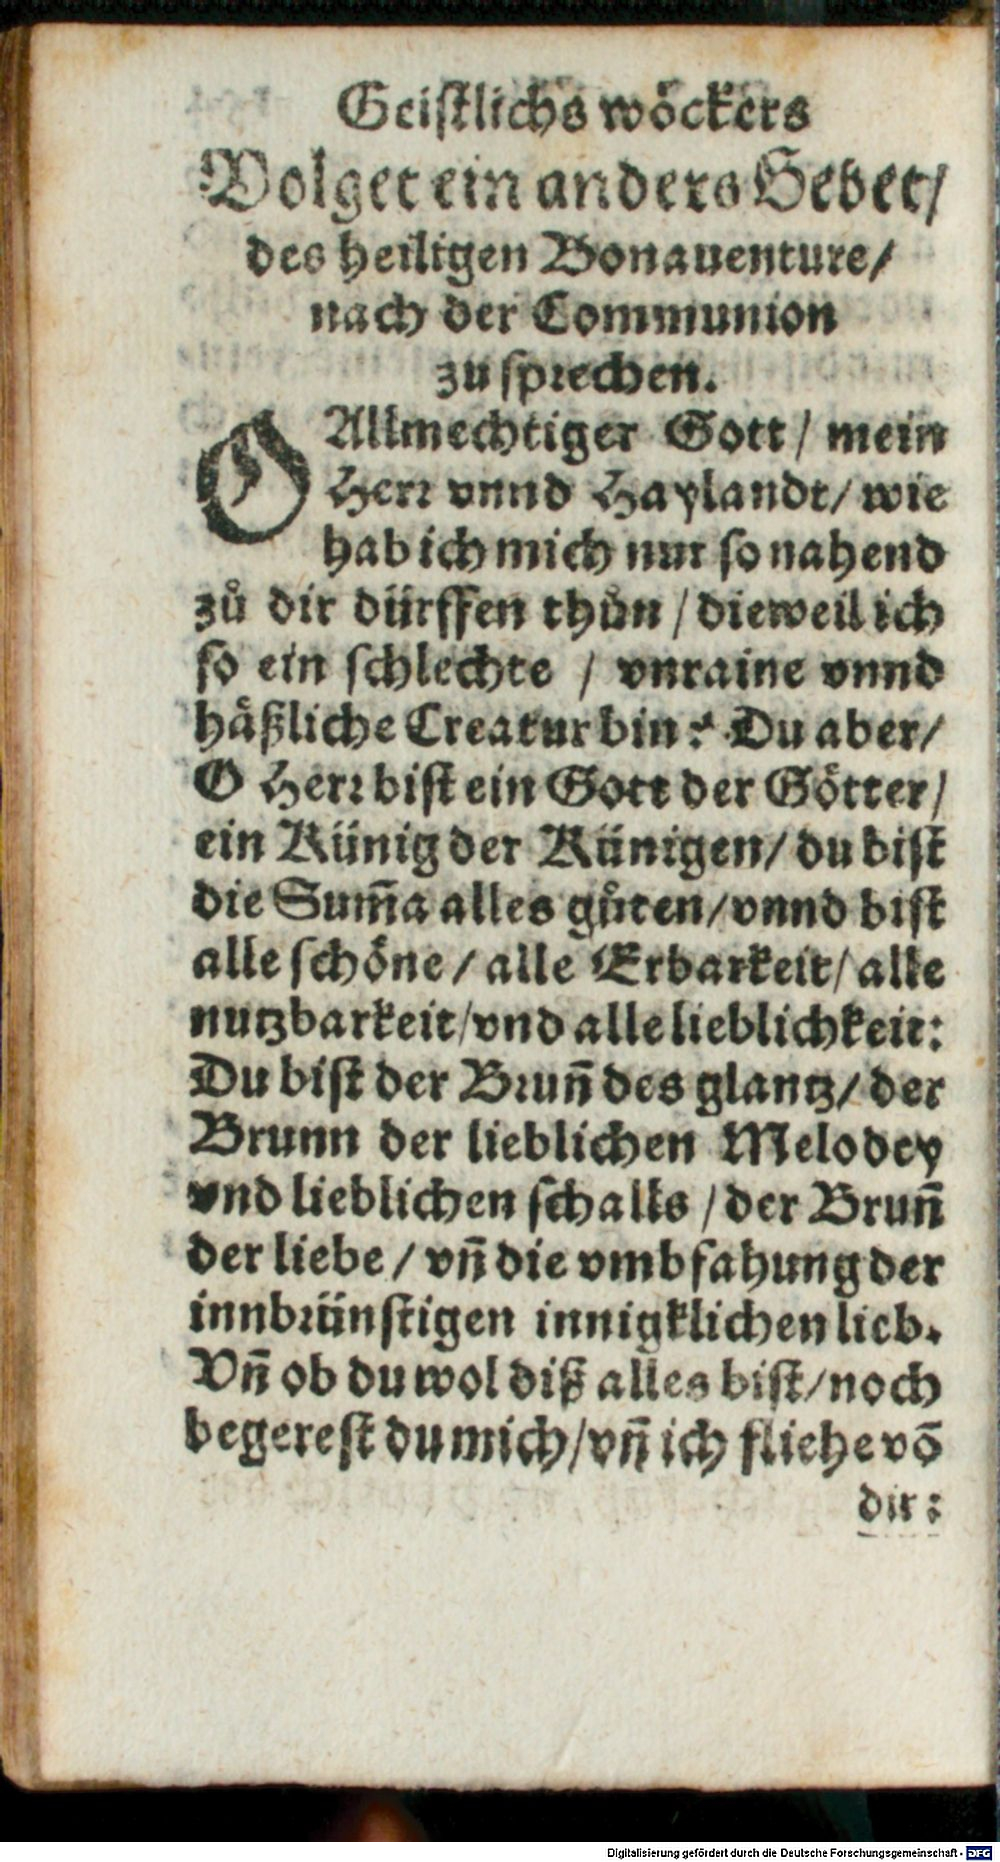 Geistlichs wöckers
Volget ein anders Gebet/
des heiligen Bonauenture/
nach der Communion
zu sprechen.
O Allmechtiger Gott/ mein
Herr vnnd Haylandt/ wie
hab ich mich nur so nahend
zů dir dürffen thůn / dieweil ich
so ein schlechte / vnraine vnnd
häßliche Creatur bin? Du aber/
O Herr bist ein Gott der Götter/
ein Künig der Künigen/ du bist
die Sum̃a alles gůten/ vnnd bist
alle schöne/ alle Erbarkeit/ alle
nutzbarkeit/ vnd alle lieblichkeit:
Du bist der Brun̄ des glantz/ der
Brunn der lieblichen Melodey
vnd lieblichen schalls / der Brun̄
der liebe / vn̄ die vmbfahung der
innbrünstigen innigklichen lieb.
Vn̄ ob du wol diß alles bist/ noch
begerest du mich/ vn̄ ich fliehe vō
dir:
Digitalisierung gefördert durch die Deutsche Forschungsgemeinschaft - DFG